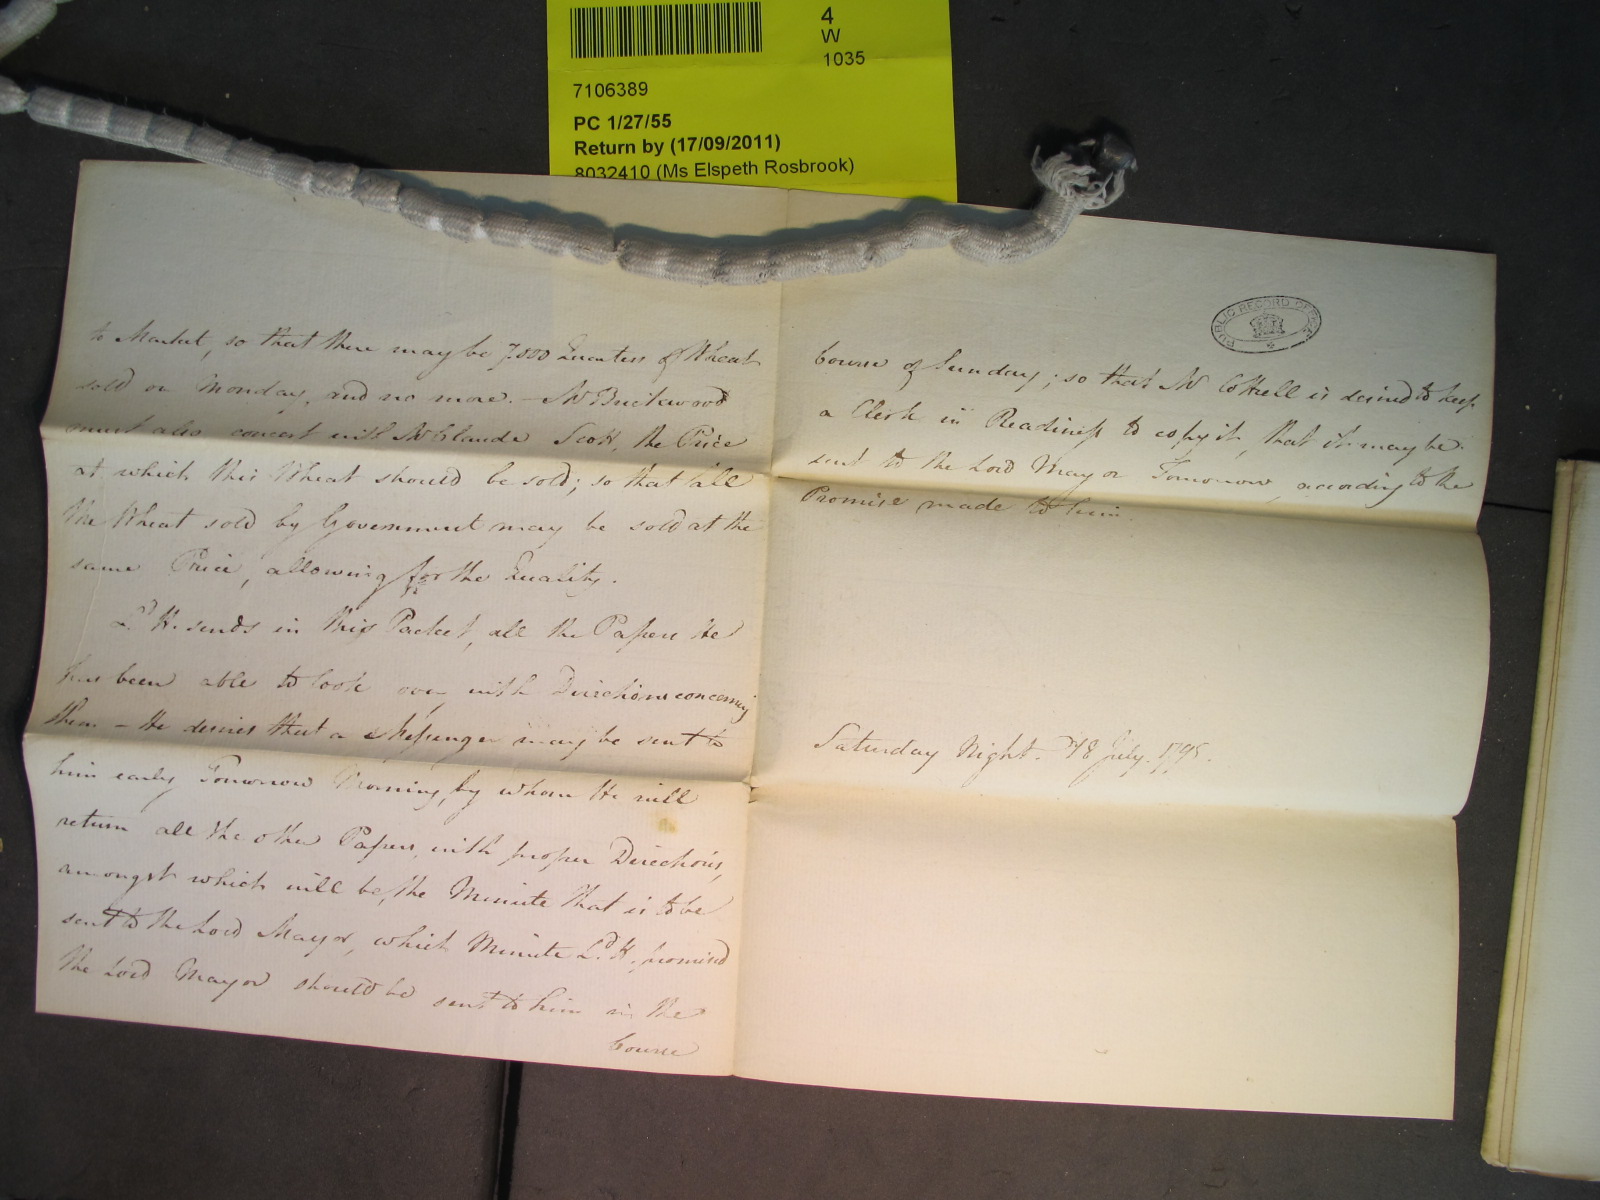 4
W
1035
7106389
PC 1/27/55
Return by (17/09/2011)
8032410 (Ms Elspeth Rosbrook)
PUBLIC RECORD OFFICE
to Market, so that there may be 7.000 Quarters of Wheat
sold on Monday, and no more. – Mr Buckwood
must also concert with Mr Claude Scott, the Price
at which this Wheat should be sold; so that all
the Wheat sold by Government may be sold at the
same Price, allowing for the Quality.
Ld H. sends in this Packet, all the Papers He
has been able to look over, with Directions concerning
them – He desires that a Messenger may be sent to
him early Tomorrow Morning, by whom He will
return all the other Papers, with proper Directions,
amongst which will be, the Minute that is to be
sent to the Lord Mayor, which Minute Ld. H. promised
the Lord Mayor should be sent to him in the
Course
Course of Sunday; so that Mr Cottrell is desired to keep
a Clerk in Readiness to copy it, that it may be
sent to the Lord Mayor Tomorrow, according to the
Promise made to him.
Saturday Night. 18 July. 1795.